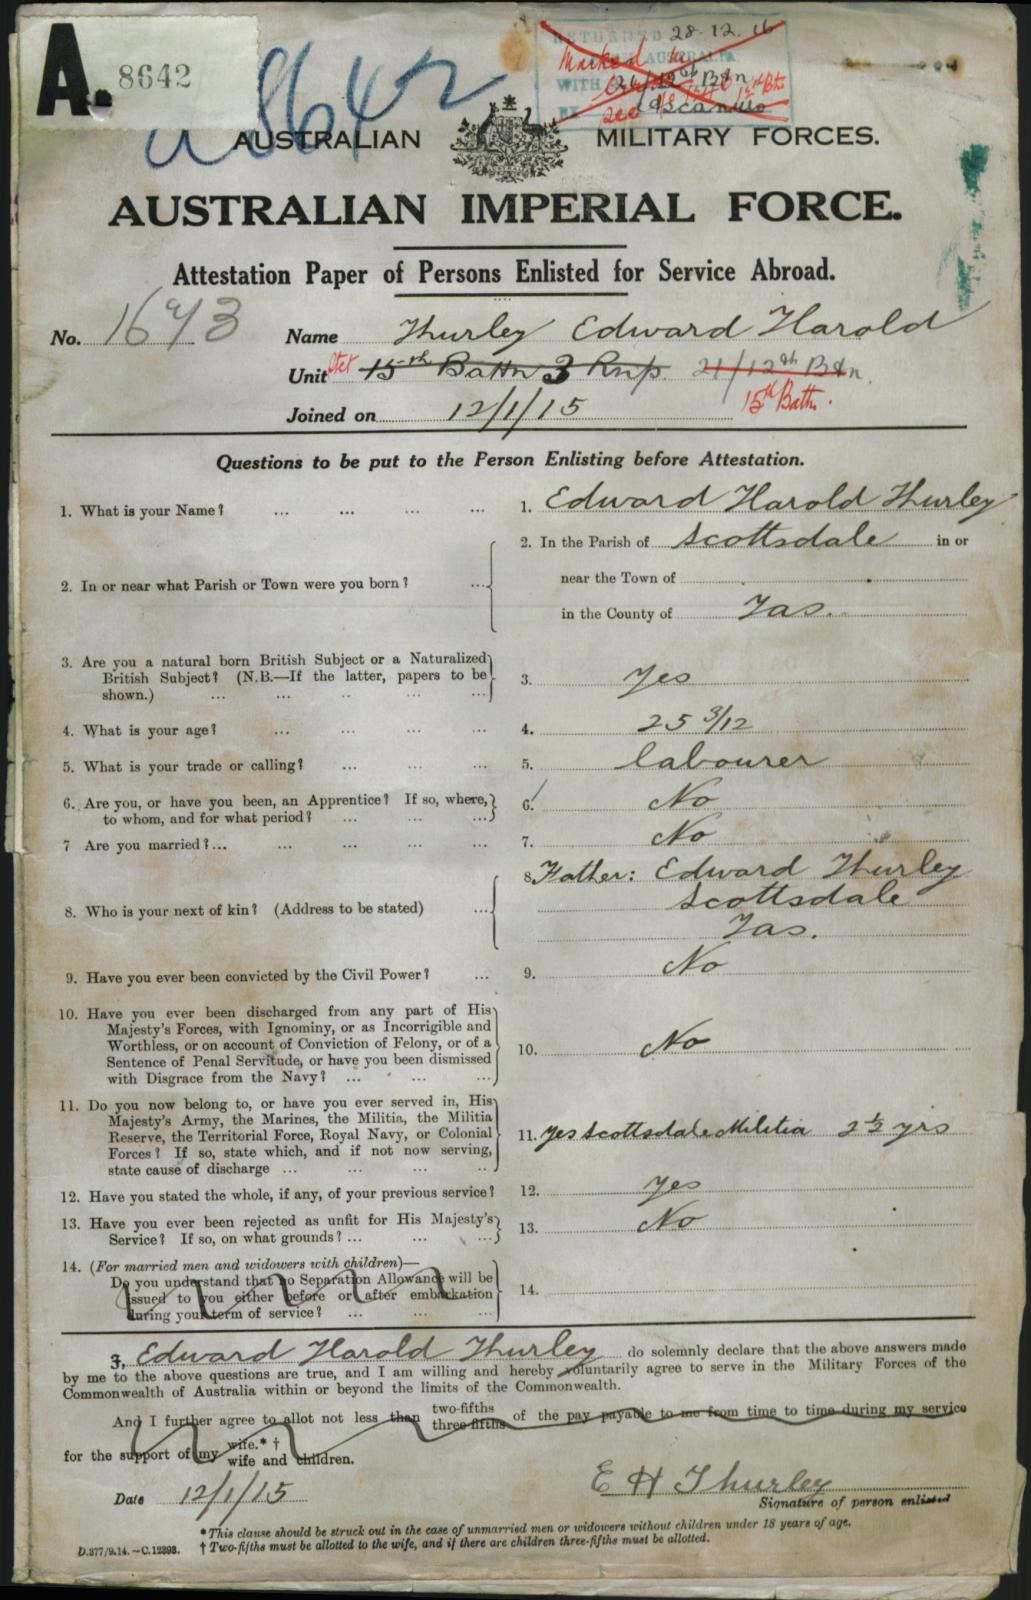 A. 8642
8642
RETURNED 28.12.16
AUSTRALIA
Marked in
WITH
Btn
see 15th Btn
BY
AUSTRALIAN MILITARY FORCES.
AUSTRALIAN IMPERIAL FORCE.
Attestation Paper of Persons Enlisted for Service Abroad.
No. 1673 Name Thurley Edward Harold
Unit 15th Battn 3 Rnp. 21/12th Btn.
15th Battn.
Joined on 12/1/15
Questions to be put to the Person Enlisting before Attestation.
1. What is your Name? ... ... ... ... 1. Edward Harold Thurley
2. In or near what Parish or Town were you born? ... 2. In the Parish of Scottsdale in or
near the Town of
in the County of Tas.
3. Are you a natural born British Subject or a Naturalized
British Subject? (N.B.—If the latter, papers to be
shown.) ... ... .. ... ... 3. Yes
4. What is your age? ... ... ... ... 4. 25 3/12
5. What is your trade or calling? ... ... ... 5. labourer
6. Are you, or have you been, an Apprentice? If so, where,
to whom, and for what period? ... ... ... 6. No
7 Are you married?... ... ... ... ... 7. No
8. Who is your next of kin? (Address to be stated) ... 8. Father: Edward Thurley
Scottsdale
Tas.
9. Have you ever been convicted by the Civil Power? ... 9. No
10. Have you ever been discharged from any part of His
Majesty's Forces, with Ignominy, or as Incorrigible and
Worthless, or on account of Conviction of Felony, or of a
Sentence of Penal Servitude, or have you been dismissed
with Disgrace from the Navy? ... ... ... 10. No
11. Do you now belong to, or have you ever served in, His
Majesty's Army, the Marines, the Militia, the Militia
Reserve, the Territorial Force, Royal Navy, or Colonial
Forces? If so, state which, and if not now serving,
state cause of discharge ... ... ... .. 11. yes Scottsdale Militia 2½ yrs
12. Have you stated the whole, if any, of your previous service? 12. yes
13. Have you ever been rejected as unfit for His Majesty's
Service? If so, on what grounds? ... ... ... 13. No
14. (For married men and widowers with children)—
Do you understand that no Separation Allowance will be
issued to you either before or after embarkation
during your term of service? ... ... ... 14.
I, Edward Harold Thurley do solemnly declare that the above answers made
by me to the above questions are true, and I am willing and hereby voluntarily agree to serve in the Military Forces of the
Commonwealth of Australia within or beyond the limits of the Commonwealth.
And I further agree to allot not less than two-fifths three-fifths of the pay payable to me from time to time during my service
for the support of my wife.* † wife and children.
Date 12/1/15 E H Thurley
Signature of person enlisted
* This clause should be struck out in the case of unmarried men or widowers without children under 18 years of age.
D.377/9.14.—C.12393. † Two-fifths must be allotted to the wife, and if there are children three-fifths must be allotted.